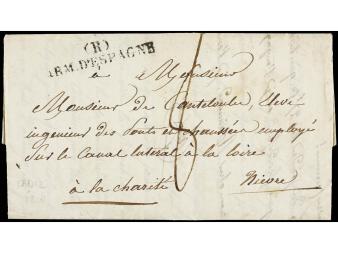 (R)
ARM. D'ESPAGNE
à Monsieur
Monsieur de Canteloube, Eleve
ingenieur des Ponts et chaussées employé
Sur le Canal lateral à la loire
à la charité Nievre